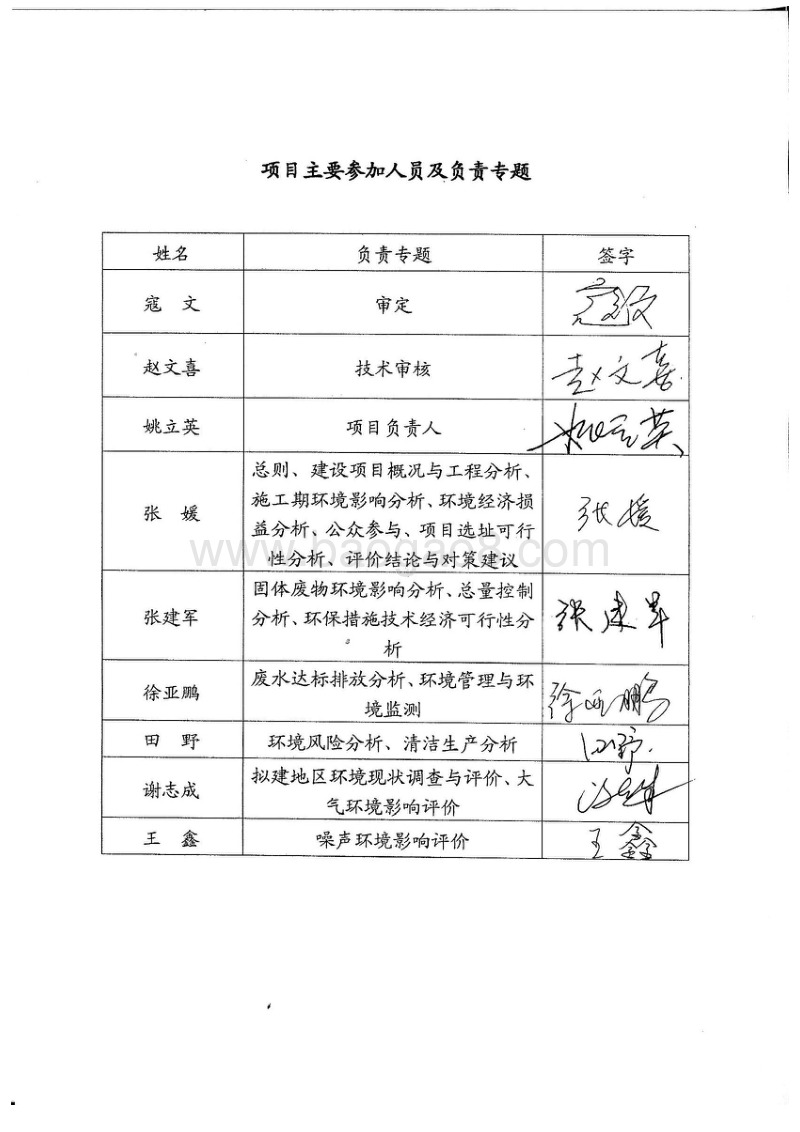 项目主要参加人员及负责专题
姓名 负责专题 签字
寇 文 审定 寇文
赵文喜 技术审核 赵文喜
姚立英 项目负责人 姚立英
总则、建设项目概况与工程分析、
施工期环境影响分析、环境经济损
张 媛 益分析、公众参与、项目选址可行 张媛
性分析、评价结论与对策建议
www.baogao8.com
固体废物环境影响分析、总量控制
张建军 分析、环保措施技术经济可行性分 张建军
析
徐亚鹏 废水达标排放分析、环境管理与环 徐亚鹏
境监测
田 野 环境风险分析、清洁生产分析 田野
谢志成 拟建地区环境现状调查与评价、大
气环境影响评价
王 鑫 噪声环境影响评价 王鑫